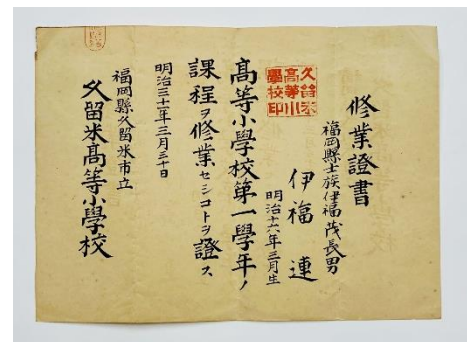 修業證書
福岡縣士族伊福茂長男
伊福連
明治十六年三月生
久留米高等小學校印
高等小學校第一學年ノ
課程ヲ修業セシコトヲ證ス
明治三十一年三月三十日
福岡縣久留米市立
久留米高等小學校